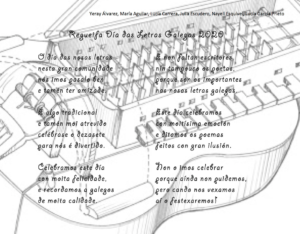 Yeray Álvarez, María Aguilar, Lucía Carrera, Julia Escudero, Nayeli
Regueifa Día das Letras Galegas 2020
O día das nosas letras
nesta gran comunidade
nós imos pasalo ben
e tamén ter amizade.
É algo tradicional
e tamén moi atrevido
celébrase o dezasete
para nós é divertido.
Celebramos este día
con moita felicidade,
e recordamos ó galegos
de moita calidade.
E non faltan escritores
nin tampouco os poetas
porque son os importantes
nas nosas letras galegas.
Este día celebramos
con moitísima emoción
e ditemos os poemas
feitos con gran ilusión.
Non o imos celebrar
porque aínda non puidemos,
pero cando nos vexamos
aí o festexaremos!